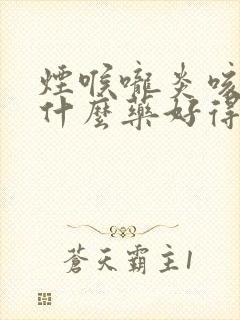 煙喉嚨炎咳
什麼藥好得
蒼天霸主1